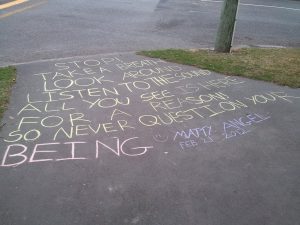 STOP!
TAKE A BREATH
LOOK ABOUT
LISTEN TO THE SOUND
ALL YOU SEE IS HERE
FOR A REASON
SO NEVER QUESTION YOUR
BEING.
MATTY ANGEL
FEB 23 2012